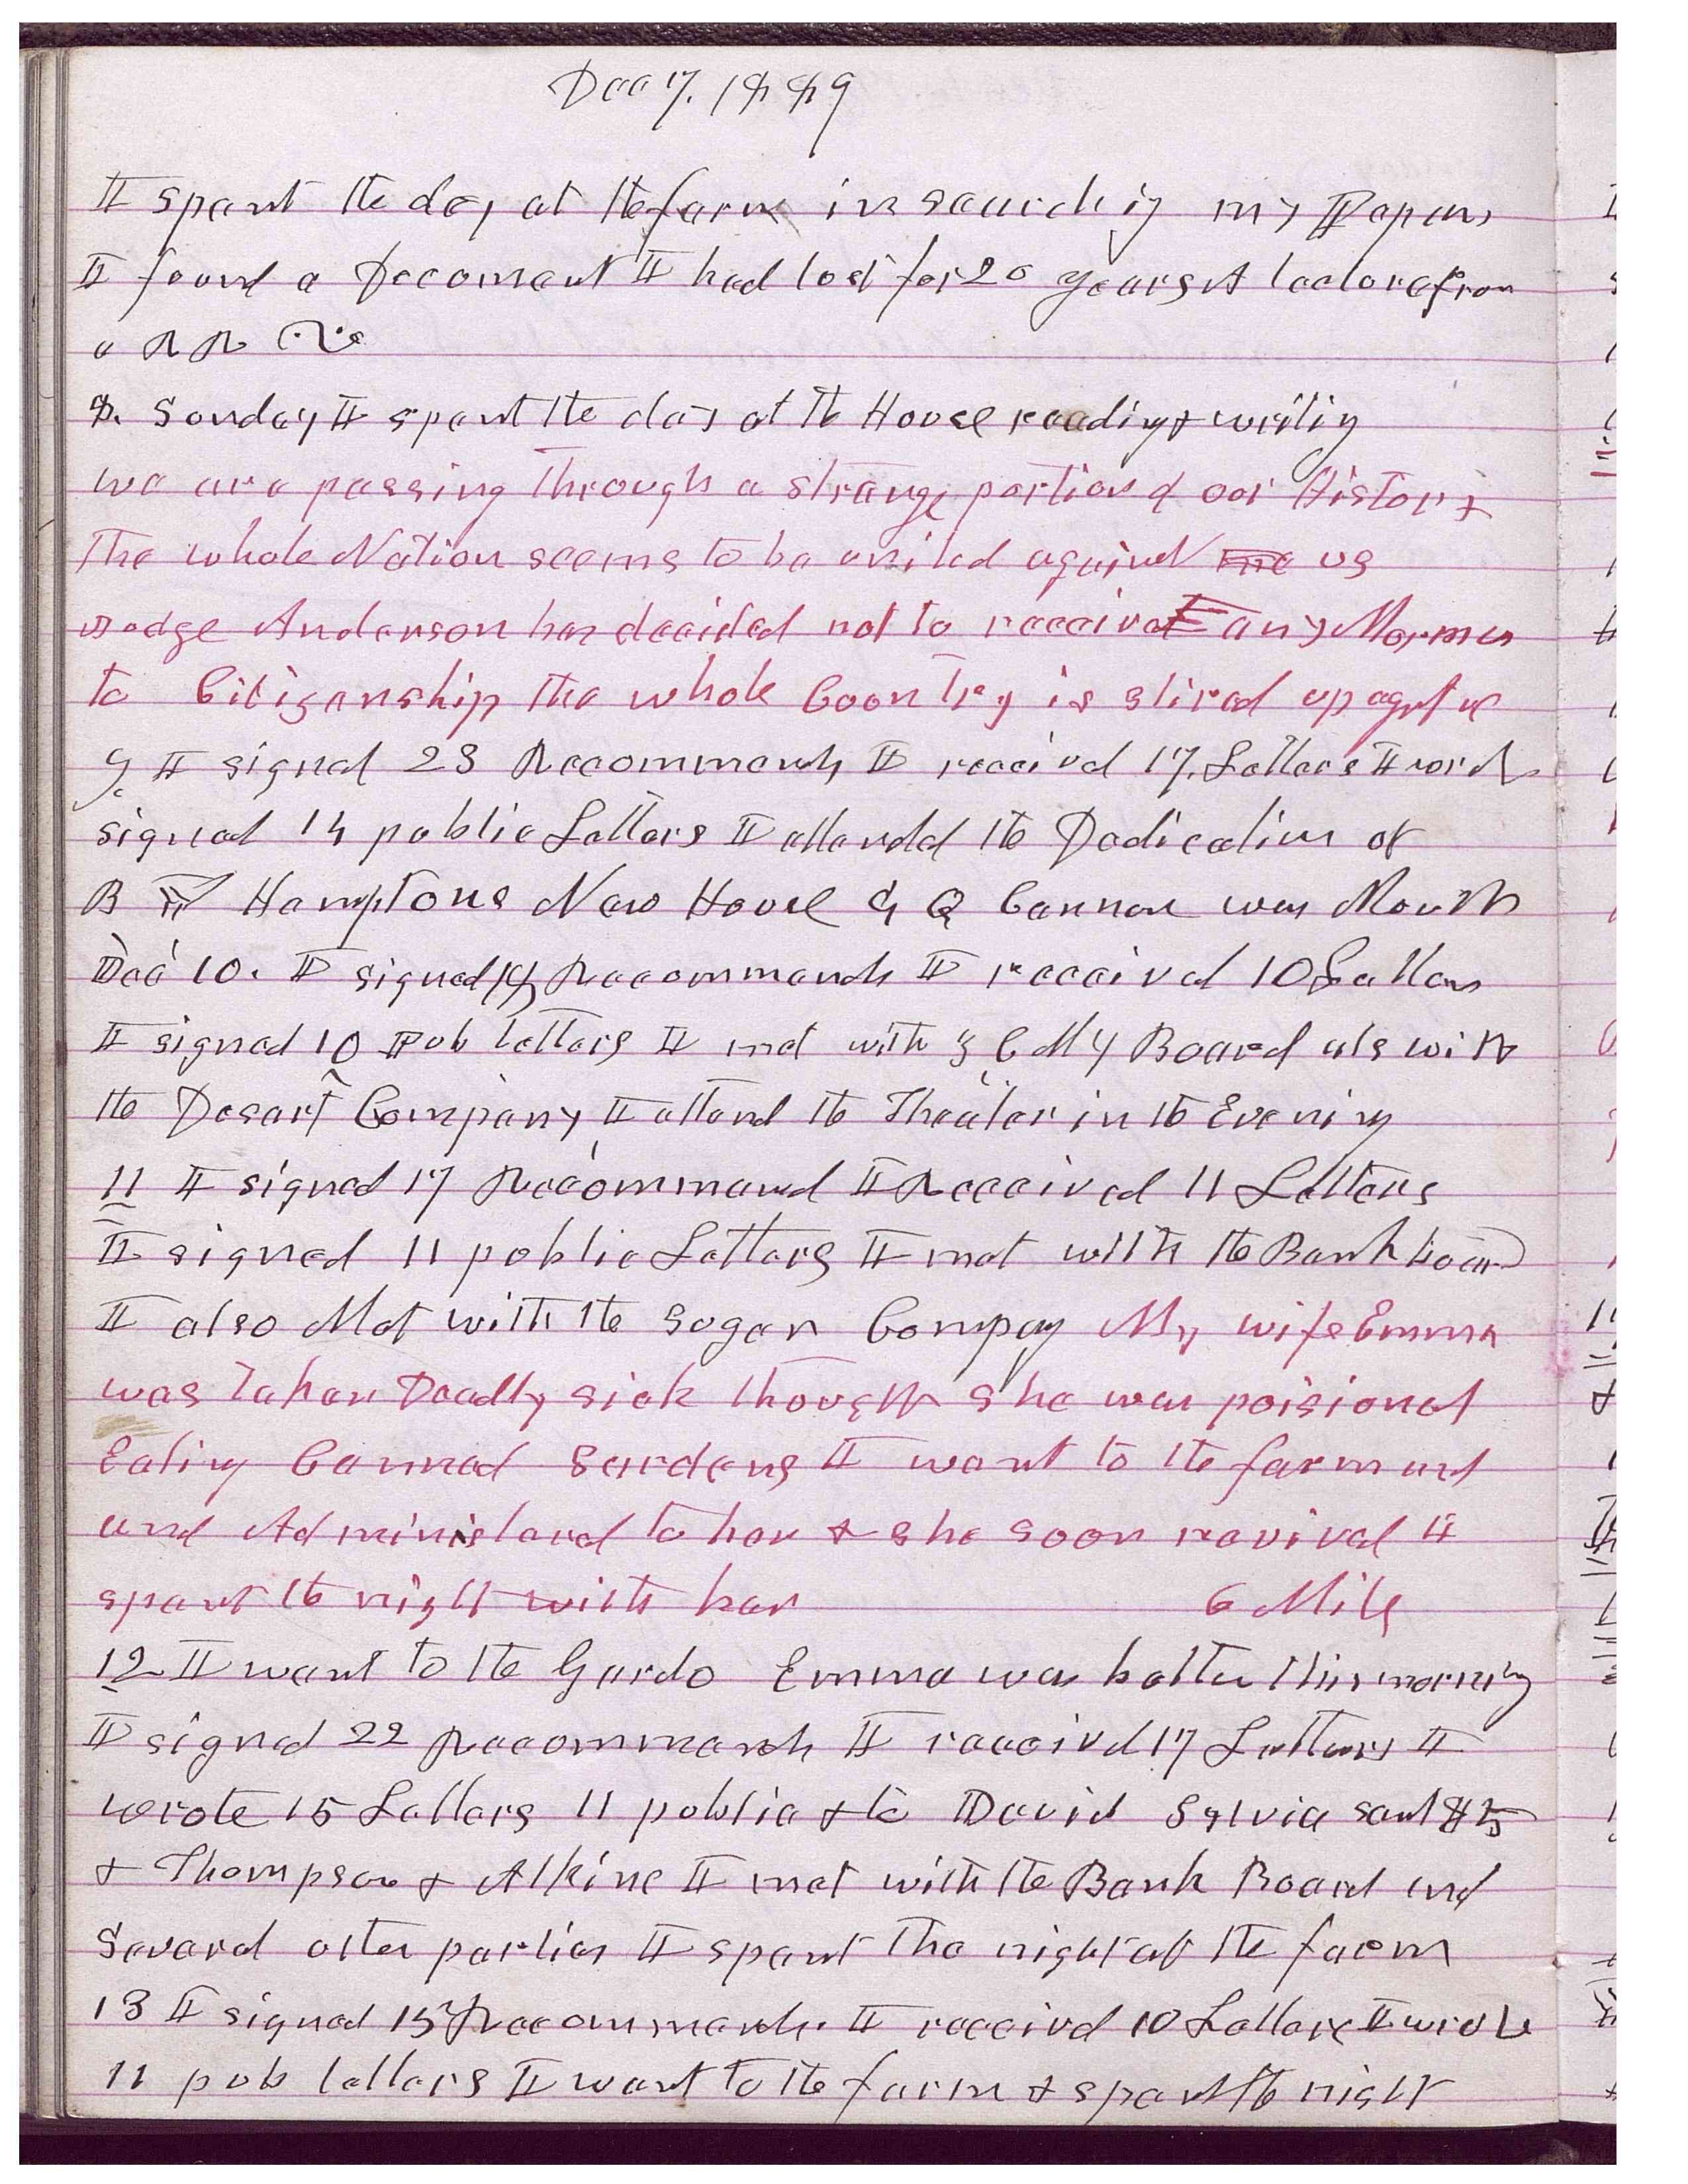 Dec 7. 1889
I spent the day at the farm in searchig my Papers
I found a Decoment I had lost for 20 years A lecture from
a
8. Sonday I spent the day at th House reading & writig
we are passing through a strange portion of our History
The whole Nation seems to be united against me us
Judge Anderson has decided not to receive any Mormon
to Citizenship the whole Country is stired up agst us
9 I signed 23 Recommends I received 17 Letters I
signed 14 public Letters I attended the Dedication of
B Hamptons New House G Q Cannon was Mouth
Dec 10. I signed 19 Recommends I received 10 Letters
I signed 10 Pub letters I met with Z C M I Board als with
the Desart Company I attend the Theater in th Evening
11 I signed 17 Recommend I Received 11 Letters
I signed 11 public Letters I met with the Bank board
I also Met with the Sugar Compay My wife Emma
was taken Deadly sick thought she was poisioned
Eating Canned Sardens I went to the farm and
and Administered to her & she soon revived I
spent th night with her 6 Mile
12 I went to the Gardo Emma was better this morning
I signed 22 Recommends I received 17 Letters I
wrote 15 Letters 11 public & to David Sylvia sent $5
& Thompson & Atkins I met with the Bank Board and
Several other parties I spent the night at the farm
13 I signed 15 Recommends. I received 10 Letters I wrote
11 pub letters I went to the farm & spent th night